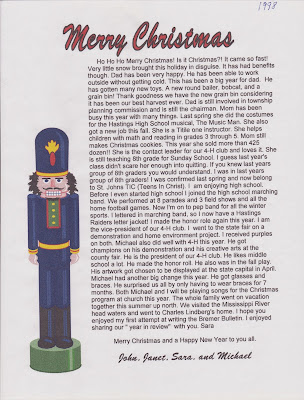 1998
Merry Christmas
Ho Ho Ho Merry Christmas! Is it Christmas?! It came so fast!
Very little snow brought this holiday in disguise. It has had benefits
though. Dad has been very happy. He has been able to work
outside without getting cold. This has been a big year for dad. He
has gotten many new toys. A new round bailer, bobcat, and a
grain bin! Thank goodness we have the new grain bin considering
it has been our best harvest ever. Dad is still involved in township
planning commission and is still the chairman. Mom has been
busy this year with many things. Last spring she did the costumes
for the Hastings High school musical, The Music Man. She also
got a new job this fall. She is a Title one instructor. She helps
children with math and reading in grades 3 through 5. Mom still
makes Christmas cookies. This year she sold more than 425
dozen!! She is the contact leader for our 4-H club and loves it. She
is still teaching 8th grade for Sunday School. I guess last year's
class didn't scare her enough into quitting. If you knew last years
group of 8th graders you would understand. I was in last years
group of 8th graders! I was confirmed last spring and now belong
to St. Johns TIC (Teens In Christ). I am enjoying high school.
Before I even started high school I joined the high school marching
band. We performed at 8 parades and 3 field shows and all the
home football games. Now I'm on to pep band for all the winter
sports. I lettered in marching band, so I now have a Hastings
Raiders letter jacket! I made the honor role again this year. I am
the vice-president of our 4-H club. I went to the state fair on a
demonstration and home environment project. I received purples
on both. Michael also did well with 4-H this year. He got
champions on his demonstration and his creative arts at the
county fair. He is the president of our 4-H club. He likes middle
school a lot. He made the honor roll. He also was in the fall play.
His artwork got chosen to be displayed at the state capital in April.
Michael had another big change this year. He got glasses and
braces. He surprised us all by only having to wear braces for 7
months. Both Michael and I will be playing songs for the Christmas
program at church this year. The whole family went on vacation
together this summer up north. We visited the Mississippi River
head waters and went to Charles Lindberg's home. I hope you
enjoyed my first attempt at writing the Bremer Bulletin. I enjoyed
sharing our " year in review" with you. Sara
Merry Christmas and a Happy New Year to you all.
John, Janet, Sara, and Michael